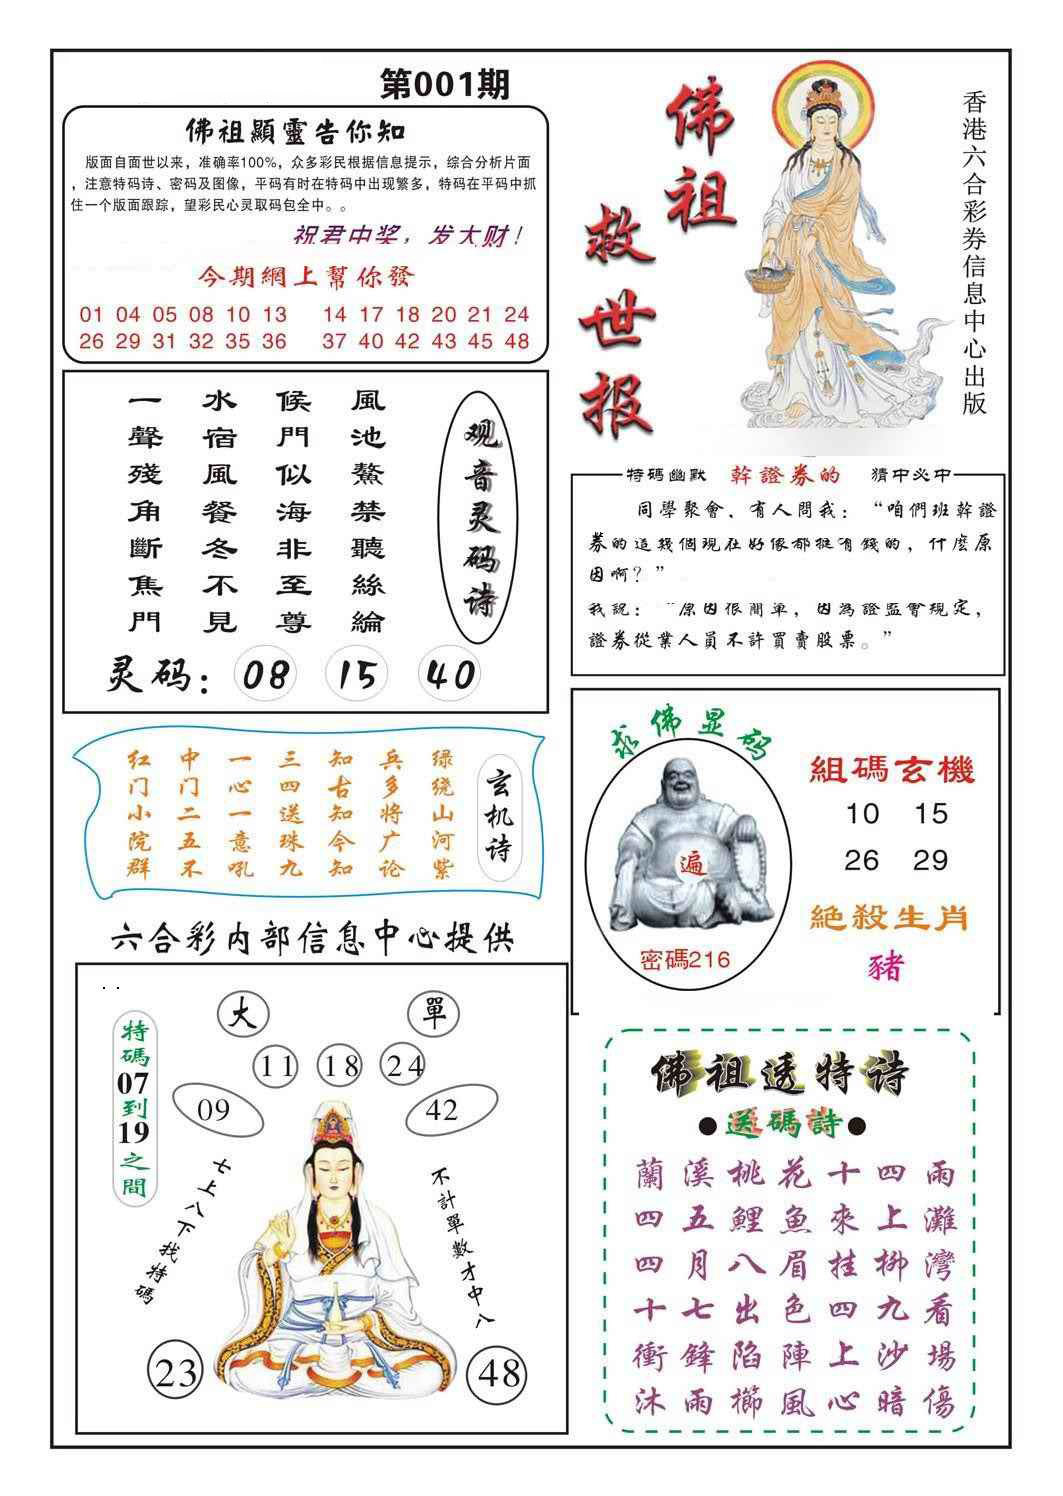 第001期
佛祖顯靈告你知
版面自面世以来，准确率100%，众多彩民根据信息提示，综合分析片面
，注意特码诗、密码及图像，平码有时在特码中出现繁多，特码在平码中抓
住一个版面跟踪，望彩民心灵取码包全中。。
祝君中奖，发大财！
今期網上幫你發
01 04 05 08 10 13 14 17 18 20 21 24
26 29 31 32 35 36 37 40 42 43 45 48
佛祖
救世报
香港六合彩券信息中心出版
观音灵码诗
風池鰲禁聽絲綸
侯門似海非至尊
水宿風餐冬不見
一聲殘角斷焦門
灵码：08 15 40
特碼幽默 幹證券的 猜中必中
同學聚會、有人問我：“咱們班幹證
券的這幾個現在好像都挺有錢的，什麼原
因啊？”
我説：“原因很簡单，因為證监會規定，
證券從業人員不許買賣股票。”
玄机诗
绿绕山河紫
兵多将广论
知古知今知
三四送珠九
一心一意吼
中门二五不
红门小院群
求佛显码
遍
密碼216
組碼玄機
10 15
26 29
絕殺生肖
豬
六合彩内部信息中心提供
特碼07到19之間
大 單
11 18 24
09 42
七上八下找特碼
不計單數才中八
23 48
佛祖透特诗
●送碼詩●
蘭溪桃花十四雨
四五鯉魚來上灘
四月八眉挂柳灣
十七出色四九看
衝鋒陷陣上沙場
沐雨櫛風心暗傷